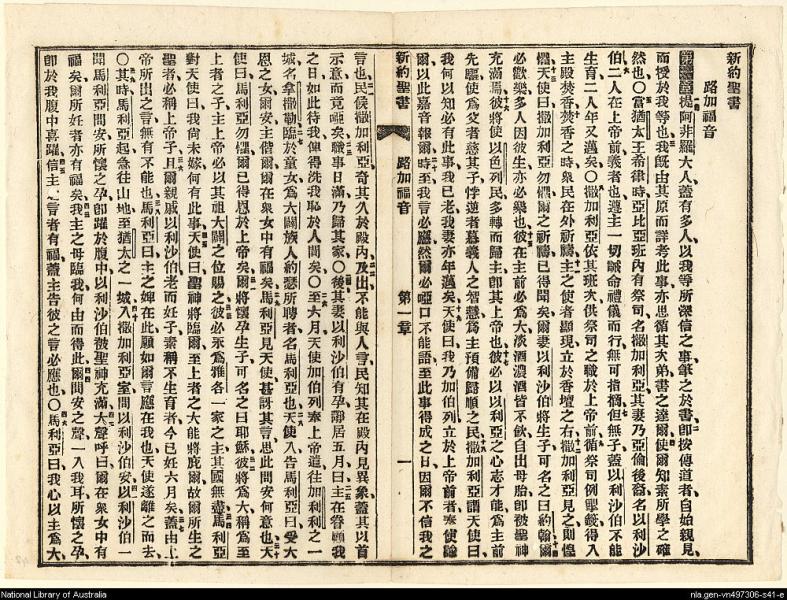 新約聖書
路加福音
第一章 提阿非羅大人蓋有多人以我等所深信之事筆之於書卽按傳道者自始親見
而授於我等也我旣由其原而詳考此事亦思循其次第書之達爾使爾知素所學之確
然也〇當猶太王希律時亞比亞班內有祭司名撒加利亞其妻乃亞倫後裔名以利沙
伯二人在上帝前義者也遵主一切誡命禮儀而行無可指摘但無子蓋以利沙伯不能
生育二人年又邁矣〇撒加利亞依其班次供祭司之職於上帝前循祭司例掣籤得入
主殿焚香焚香之時衆民在外祈禱主之使者顯現立於香壇之右撒加利亞見之則惶
懼天使曰撒加利亞勿懼爾之祈禱已得聞矣爾妻以利沙伯將生子可名之曰約翰爾
必歡樂多人因彼生亦必樂也彼在主前必爲大淡酒濃酒皆不飲自出母胎卽被聖神
充滿焉彼將使以色列民多轉而歸主卽其上帝也彼必以以利亞之心志才能爲主前
先驅使爲父者慈其子悖逆者慕義人之智慧爲主預備歸順之民撒加利亞謂天使曰
我何以知必有此事我已老我妻亦年邁矣天使曰我乃加伯列立於上帝前者奉使語
爾以此嘉音報爾時至我言必應然爾必啞口不能語至此事得成之日因爾不信我之
新約聖書 路加福音 第一章 一
言也民俟撒加利亞奇其久於殿內及出不能與人言民知其在殿內見異象蓋其以首
示意而竟啞矣職事日滿乃歸其家〇後其妻以利沙伯有孕靜居五月曰主在眷顧我
之日如此待我俾得洗我恥於人間矣〇至六月天使加伯列奉上帝遣往加利利之一
城名拿撒勒臨於童女爲大闢族人約瑟所聘者名馬利亞也天使入告馬利亞曰受大
恩之女爾安主偕爾爾在衆女中有福矣馬利亞見天使甚訝其言思此問安何意也天
使曰馬利亞勿懼爾已得恩於上帝矣爾將懷孕生子可名之曰耶穌彼將爲大稱爲至
上者之子主上帝必以其祖大闢之位賜之彼必永爲雅各一家之主其國無盡馬利亞
對天使曰我尚未嫁何有此事天使曰聖神將臨爾至上者之大能將庇爾故爾所生之
聖者必稱上帝子且爾親戚以利沙伯老而妊子素稱不生育者今已妊六月矣蓋由上
帝所出之言無有不能也馬利亞曰主之婢在此願如爾言應在我也天使遂離之而去
〇其時馬利亞起急往山地至猶太之一城入撒加利亞室問以利沙伯安以利沙伯一
聞馬利亞問安所懷之孕卽躍於腹中以利沙伯被聖神充滿大聲呼曰爾在衆女中有
福矣爾所妊者亦有福矣我主之母臨我何由而得此爾問安之聲一入我耳所懷之孕
卽於我腹中喜躍信主之言者有福蓋主告彼之言必應也〇馬利亞曰我心以主爲大
National Library of Australia
nla.gen-vn497306-s41-e